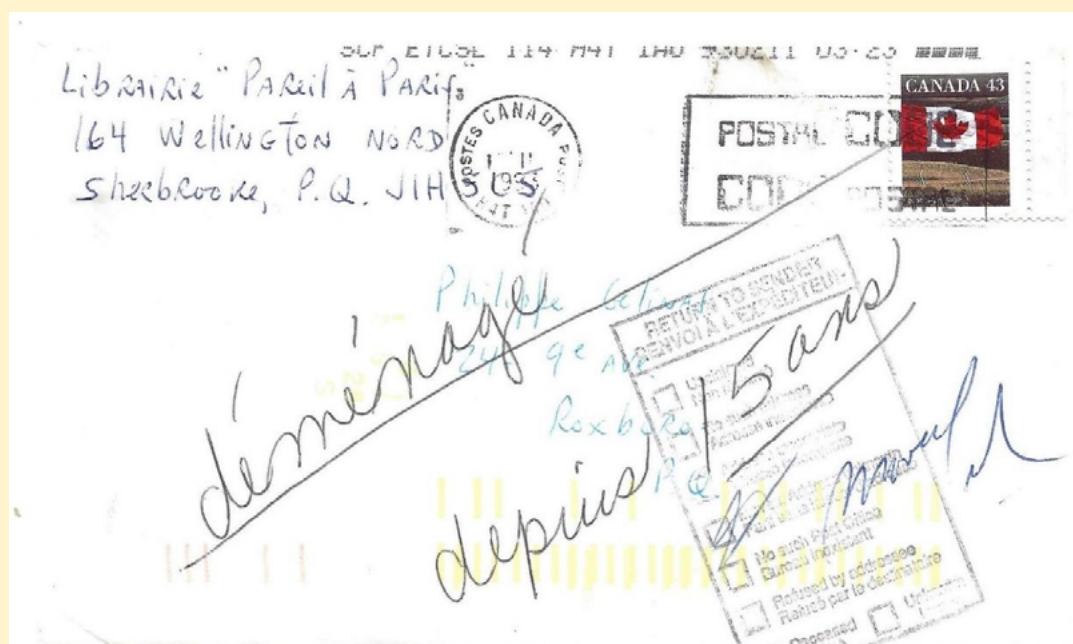 SCP ETCSL 114 H4T 1A0 930211 03-23
Librairie "Pareil à Paris"
164 Wellington Nord
Sherbrooke, P.Q. J1H 5C5
POSTES CANADA
POSTAL CODE
CODE POSTAL
CANADA 43
Philippe
9e Ave.
Roxboro
P.Q.
déménagé
depuis 15 ans
RETURN TO SENDER
RENVOI À L'EXPÉDITEUR
No such Post Office
Bureau inexistant
Refused by addressee
Refusé par le destinataire
Deceased
Unknown